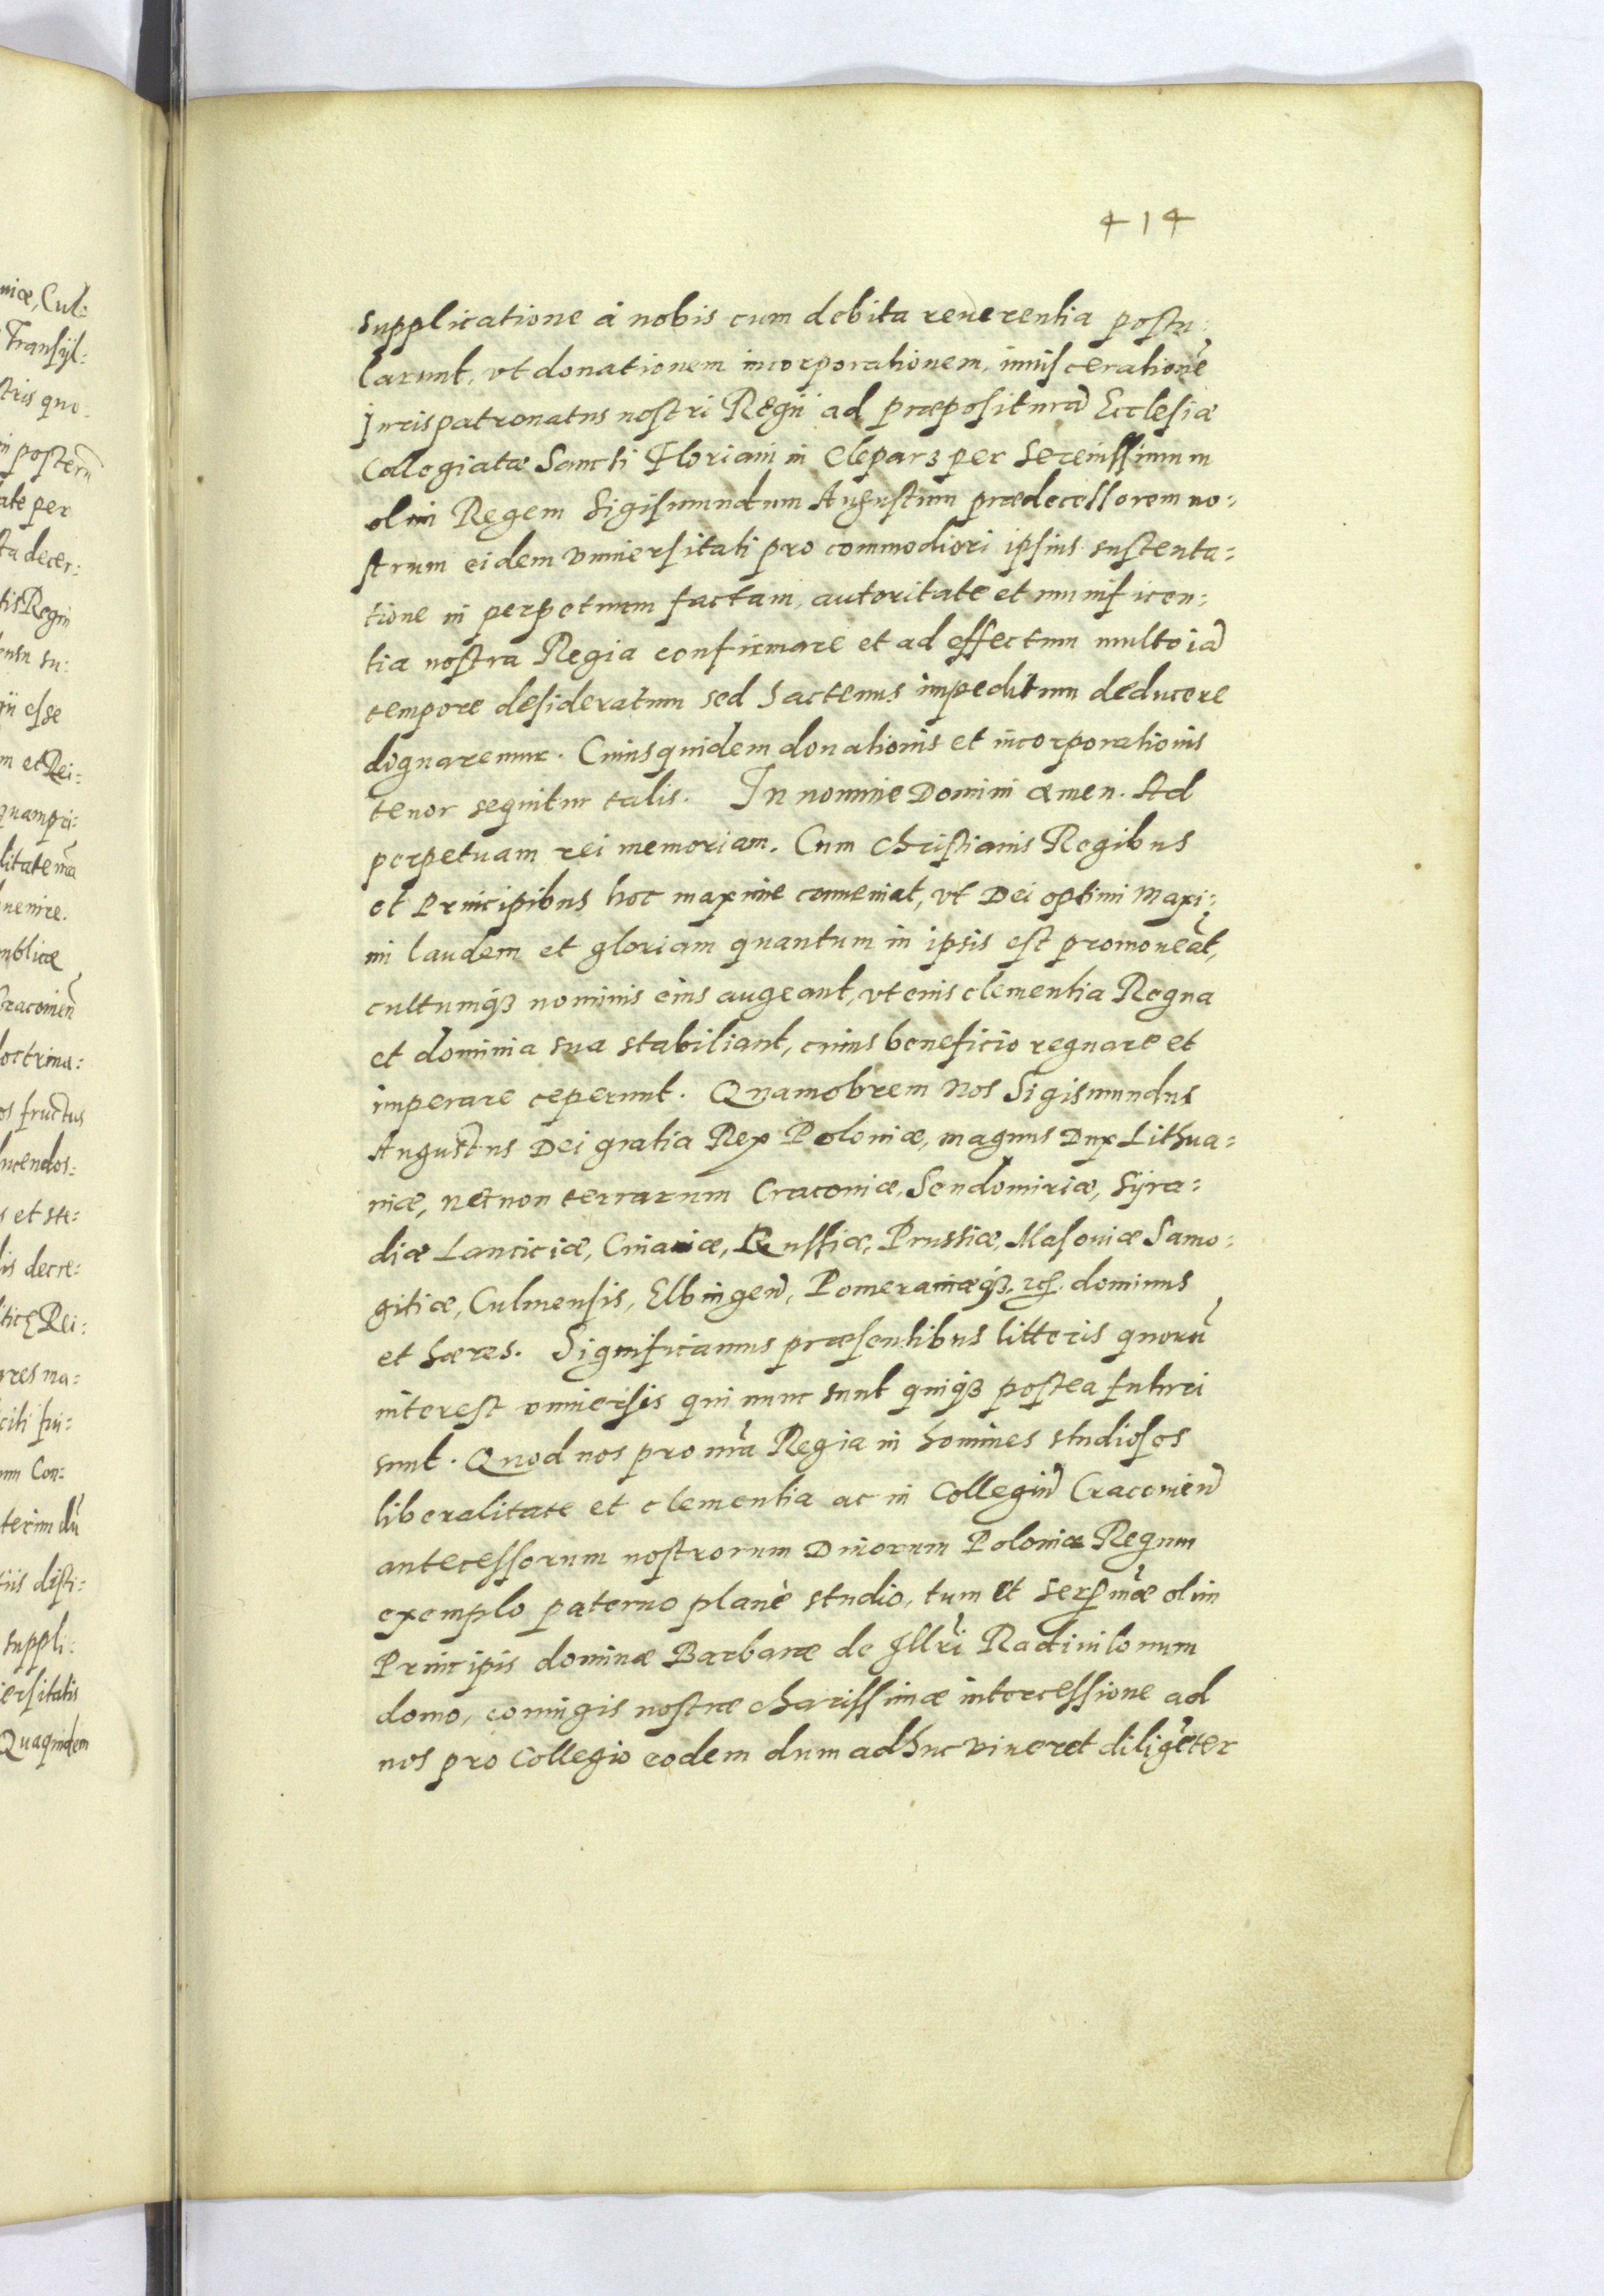 414
supplicatione à nobis cum debita reuerentia postu:
larunt, vt donationem incorporationem, inuisceratione͂
Iurispatronatus nostri Regii ad præposituram̃ Ecclesiæ
Collegiatæ Sancti Floriani in Clepars per Serenissimum
olim Regem Sigismundum Augustum prædecessorem no:
strum eidem vniuersitati pro commodiori ipsius sustenta=
tione in perpetuum factam, autoritate et munificen:
tia nostra Regia confirmare et ad effectum multo iã
tempore desideratum sed hactenus impeditum deducere
dignaremur. Cuiusquidem donationis et incorporationis
tenor sequitur talis. In nomine Domini amen. Ad
perpetuam rei memoriam. Cum Christianis Regibus
et Principibus hoc maxime conueniat, vt Dei optimi Maxi:
mi laudem et gloriam quantum in ipsis est promoueãt,
cultumqȝ nominis eius augeant, vt cuius clementia Regna
et dominia sua stabiliant, cuius beneficio regnare et
imperare ceperunt. Quamobrem Nos Sigismundus
Augustus Dei gratia Rex Poloniæ, magnus Dux Lithua=
niæ, necnon terrarum Cracouiæ, Sendomiriæ, Syra=
diæ Lanciciæ, Cuiauiæ, Russiæ, Prussiæ, Masouiæ Samo:
gitiæ, Culmensis, Elbingeñ, Pomeraniæqȝ. etc. dominus
et hæres. Significamus præsentibus litteris quorũ
interest vniuersis qui nunc sunt quiqȝ postea futuri
sunt. Quod nos pro nr̃a Regia in homines studiosos
liberalitate et clementia ac in Collegiũ Cracouieñ
antecessorum nostrorum Diuorum Poloniæ Regum
exemplo paterno planè studio, tum et Serẽmæ olim
Principis dominæ Barbaræ de Illri Radiuilonum
domo, coniugis nostræ charissimæ intercessione ad
nos pro Collegio eodem dum adhuc viueret diligẽter
niæ, Cul:
Transyl:
stris quo:
in posterũ
ate per
sta decer:
tis Regni
ensu su:
ii esse
m et Rei:
quampri:
litatem̃
uenire.
ublicæ
Cracouieñ
doctrina:
os fructus
ucendos:
s et ste:
lis decre:
Rei:
res ma:
citi fui:
um Con:
terim dũ
tiis disti:
suppli:
ersitatis
Quaquidem